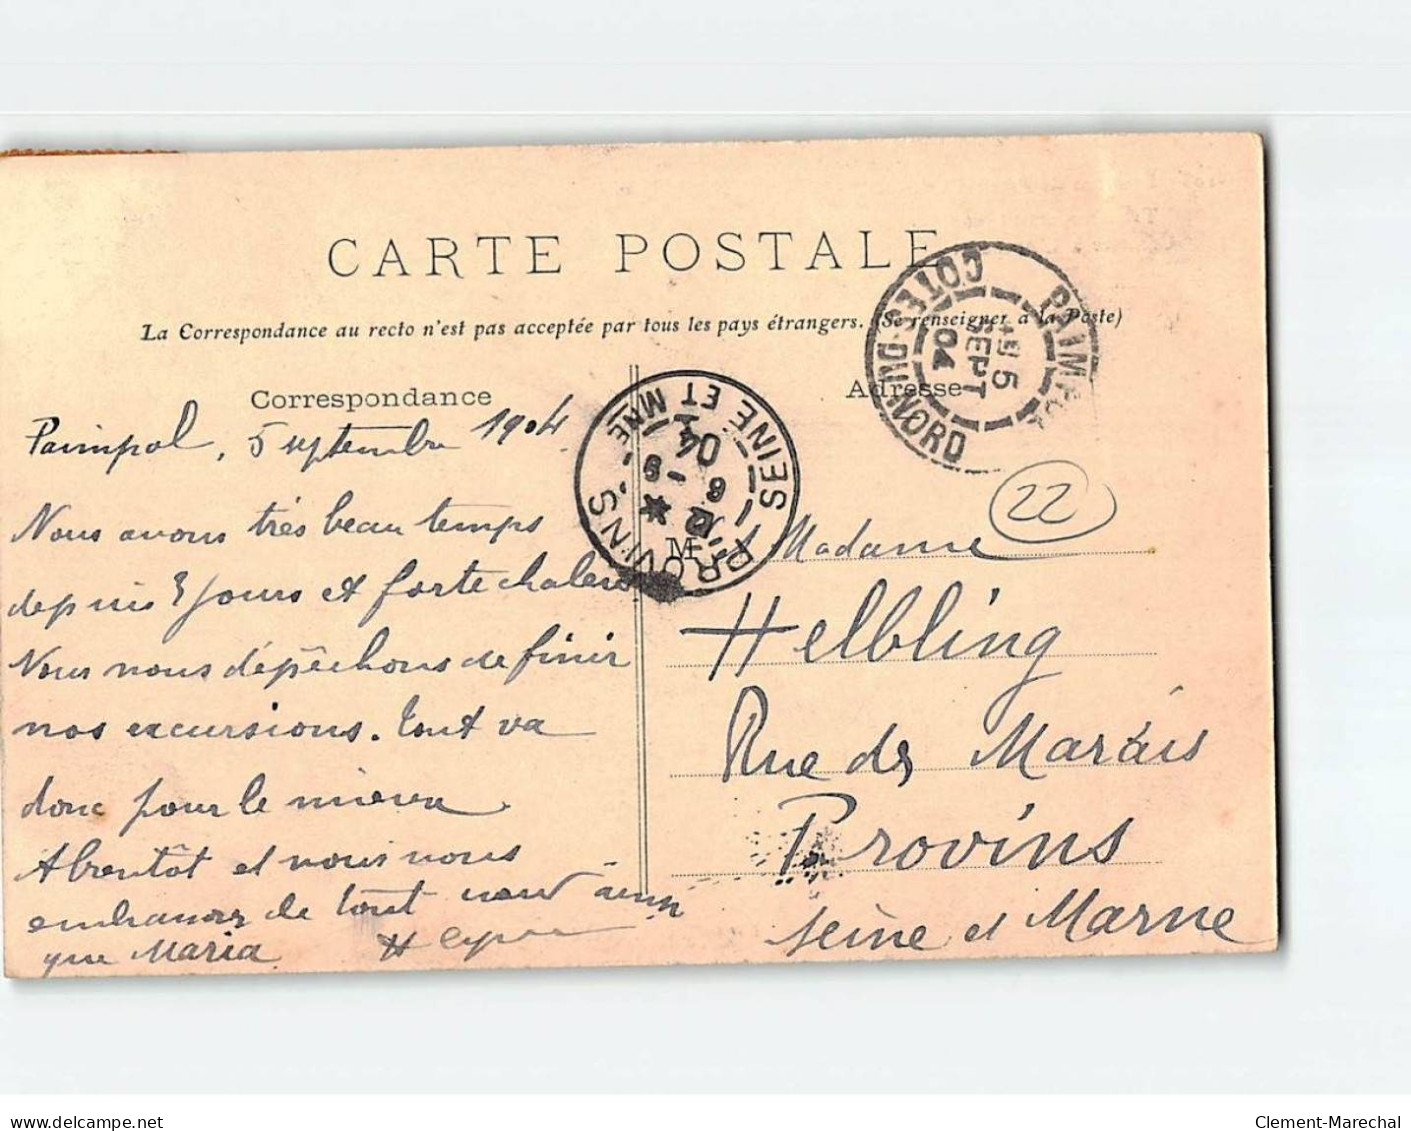 CARTE POSTALE
La Correspondance au recto n'est pas acceptée par tous les pays étrangers. (Se renseigner à la Poste)
Correspondance
Paimpol, 5 septembre 1904
Nous avons très beau temps
depuis 3 jours et forte chaleur
Nous nous dépêchons de finir
nos excursions. tout va
donc pour le mieux.
A bientôt et nous nous
embrassons de tout cœur ainsi
que Maria
PROVINS
SEINE ET MNE
6
04
PAIMPOL
COTES-DU-NORD
5
SEPT
04
Adresse
22
M Madame
Helbling
Rue des Marais
Provins
Seine et Marne
www.delcampe.net
Clement-Marechal